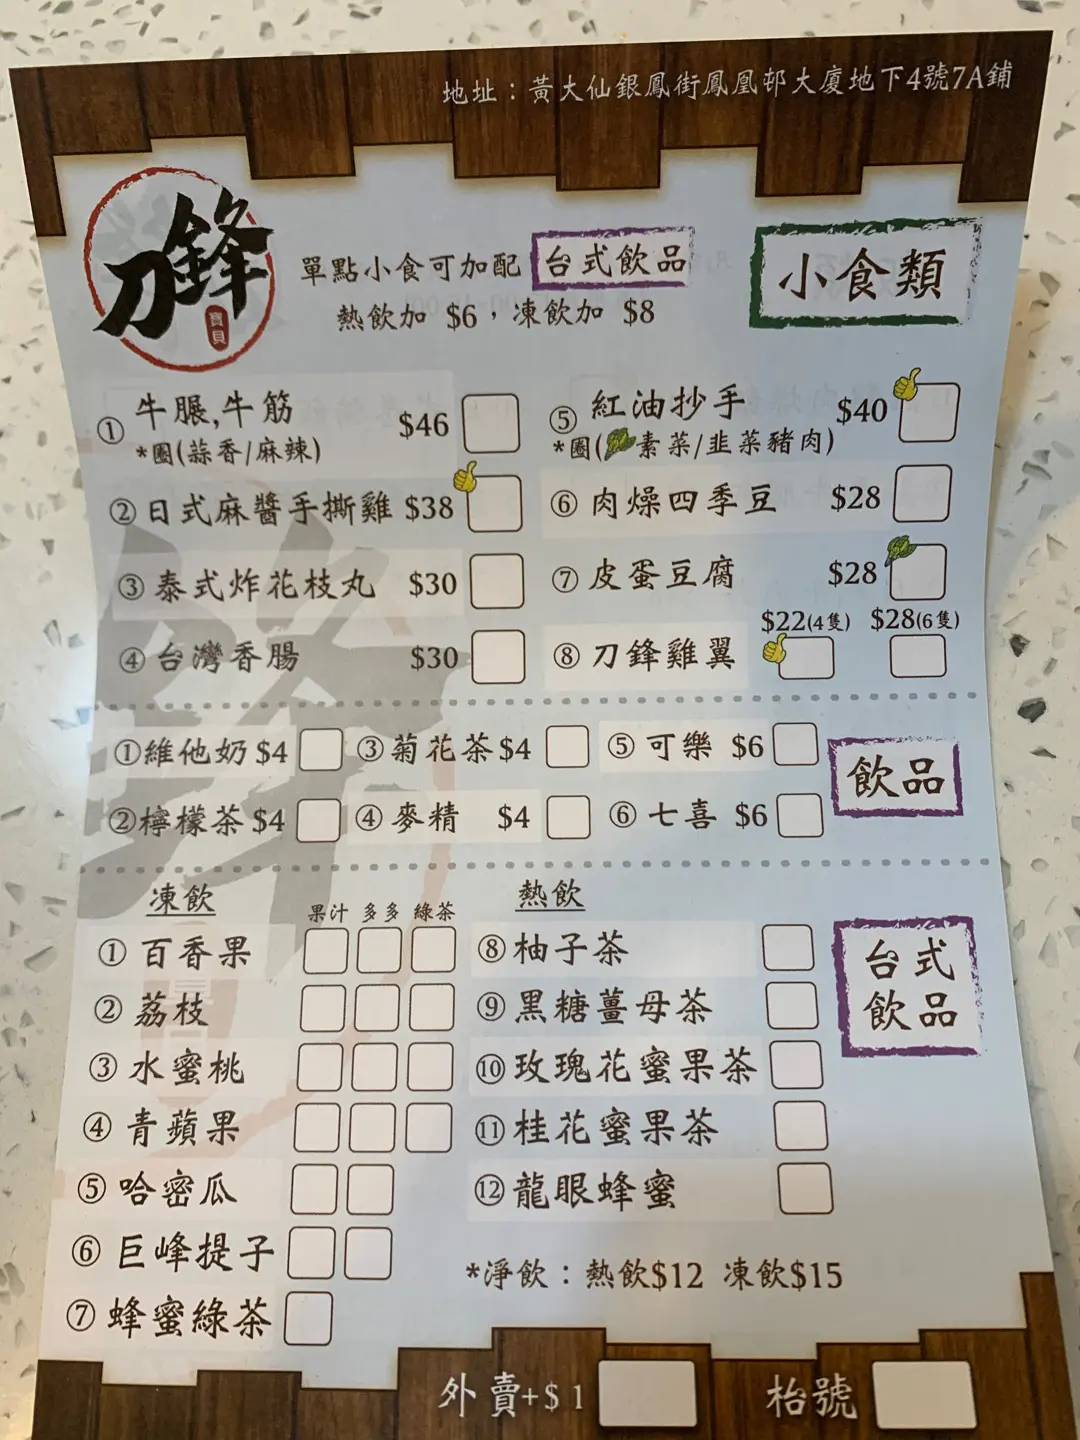 地址：黃大仙銀鳳街鳳凰邨大廈地下4號7A鋪
刀鋒
寶貝
單點小食可加配 台式飲品
熱飲加 $6，凍飲加 $8
小食類
① 牛𦟌,牛筋 $46
*圈(蒜香/麻辣)
② 日式麻醬手撕雞 $38
③ 泰式炸花枝丸 $30
④ 台灣香腸 $30
⑤ 紅油抄手 $40
*圈(素菜/韭菜豬肉)
⑥ 肉燥四季豆 $28
⑦ 皮蛋豆腐 $28
$22(4隻) $28(6隻)
⑧ 刀鋒雞翼
飲品
①維他奶 $4 ③菊花茶 $4 ⑤可樂 $6
②檸檬茶 $4 ④麥精 $4 ⑥七喜 $6
台式
飲品
凍飲
果汁 多多 綠茶
① 百香果
② 荔枝
③ 水蜜桃
④ 青蘋果
⑤ 哈密瓜
⑥ 巨峰提子
⑦ 蜂蜜綠茶
熱飲
⑧柚子茶
⑨黑糖薑母茶
⑩玫瑰花蜜果茶
⑪桂花蜜果茶
⑫龍眼蜂蜜
*淨飲：熱飲$12 凍飲$15
外賣+$1
枱號